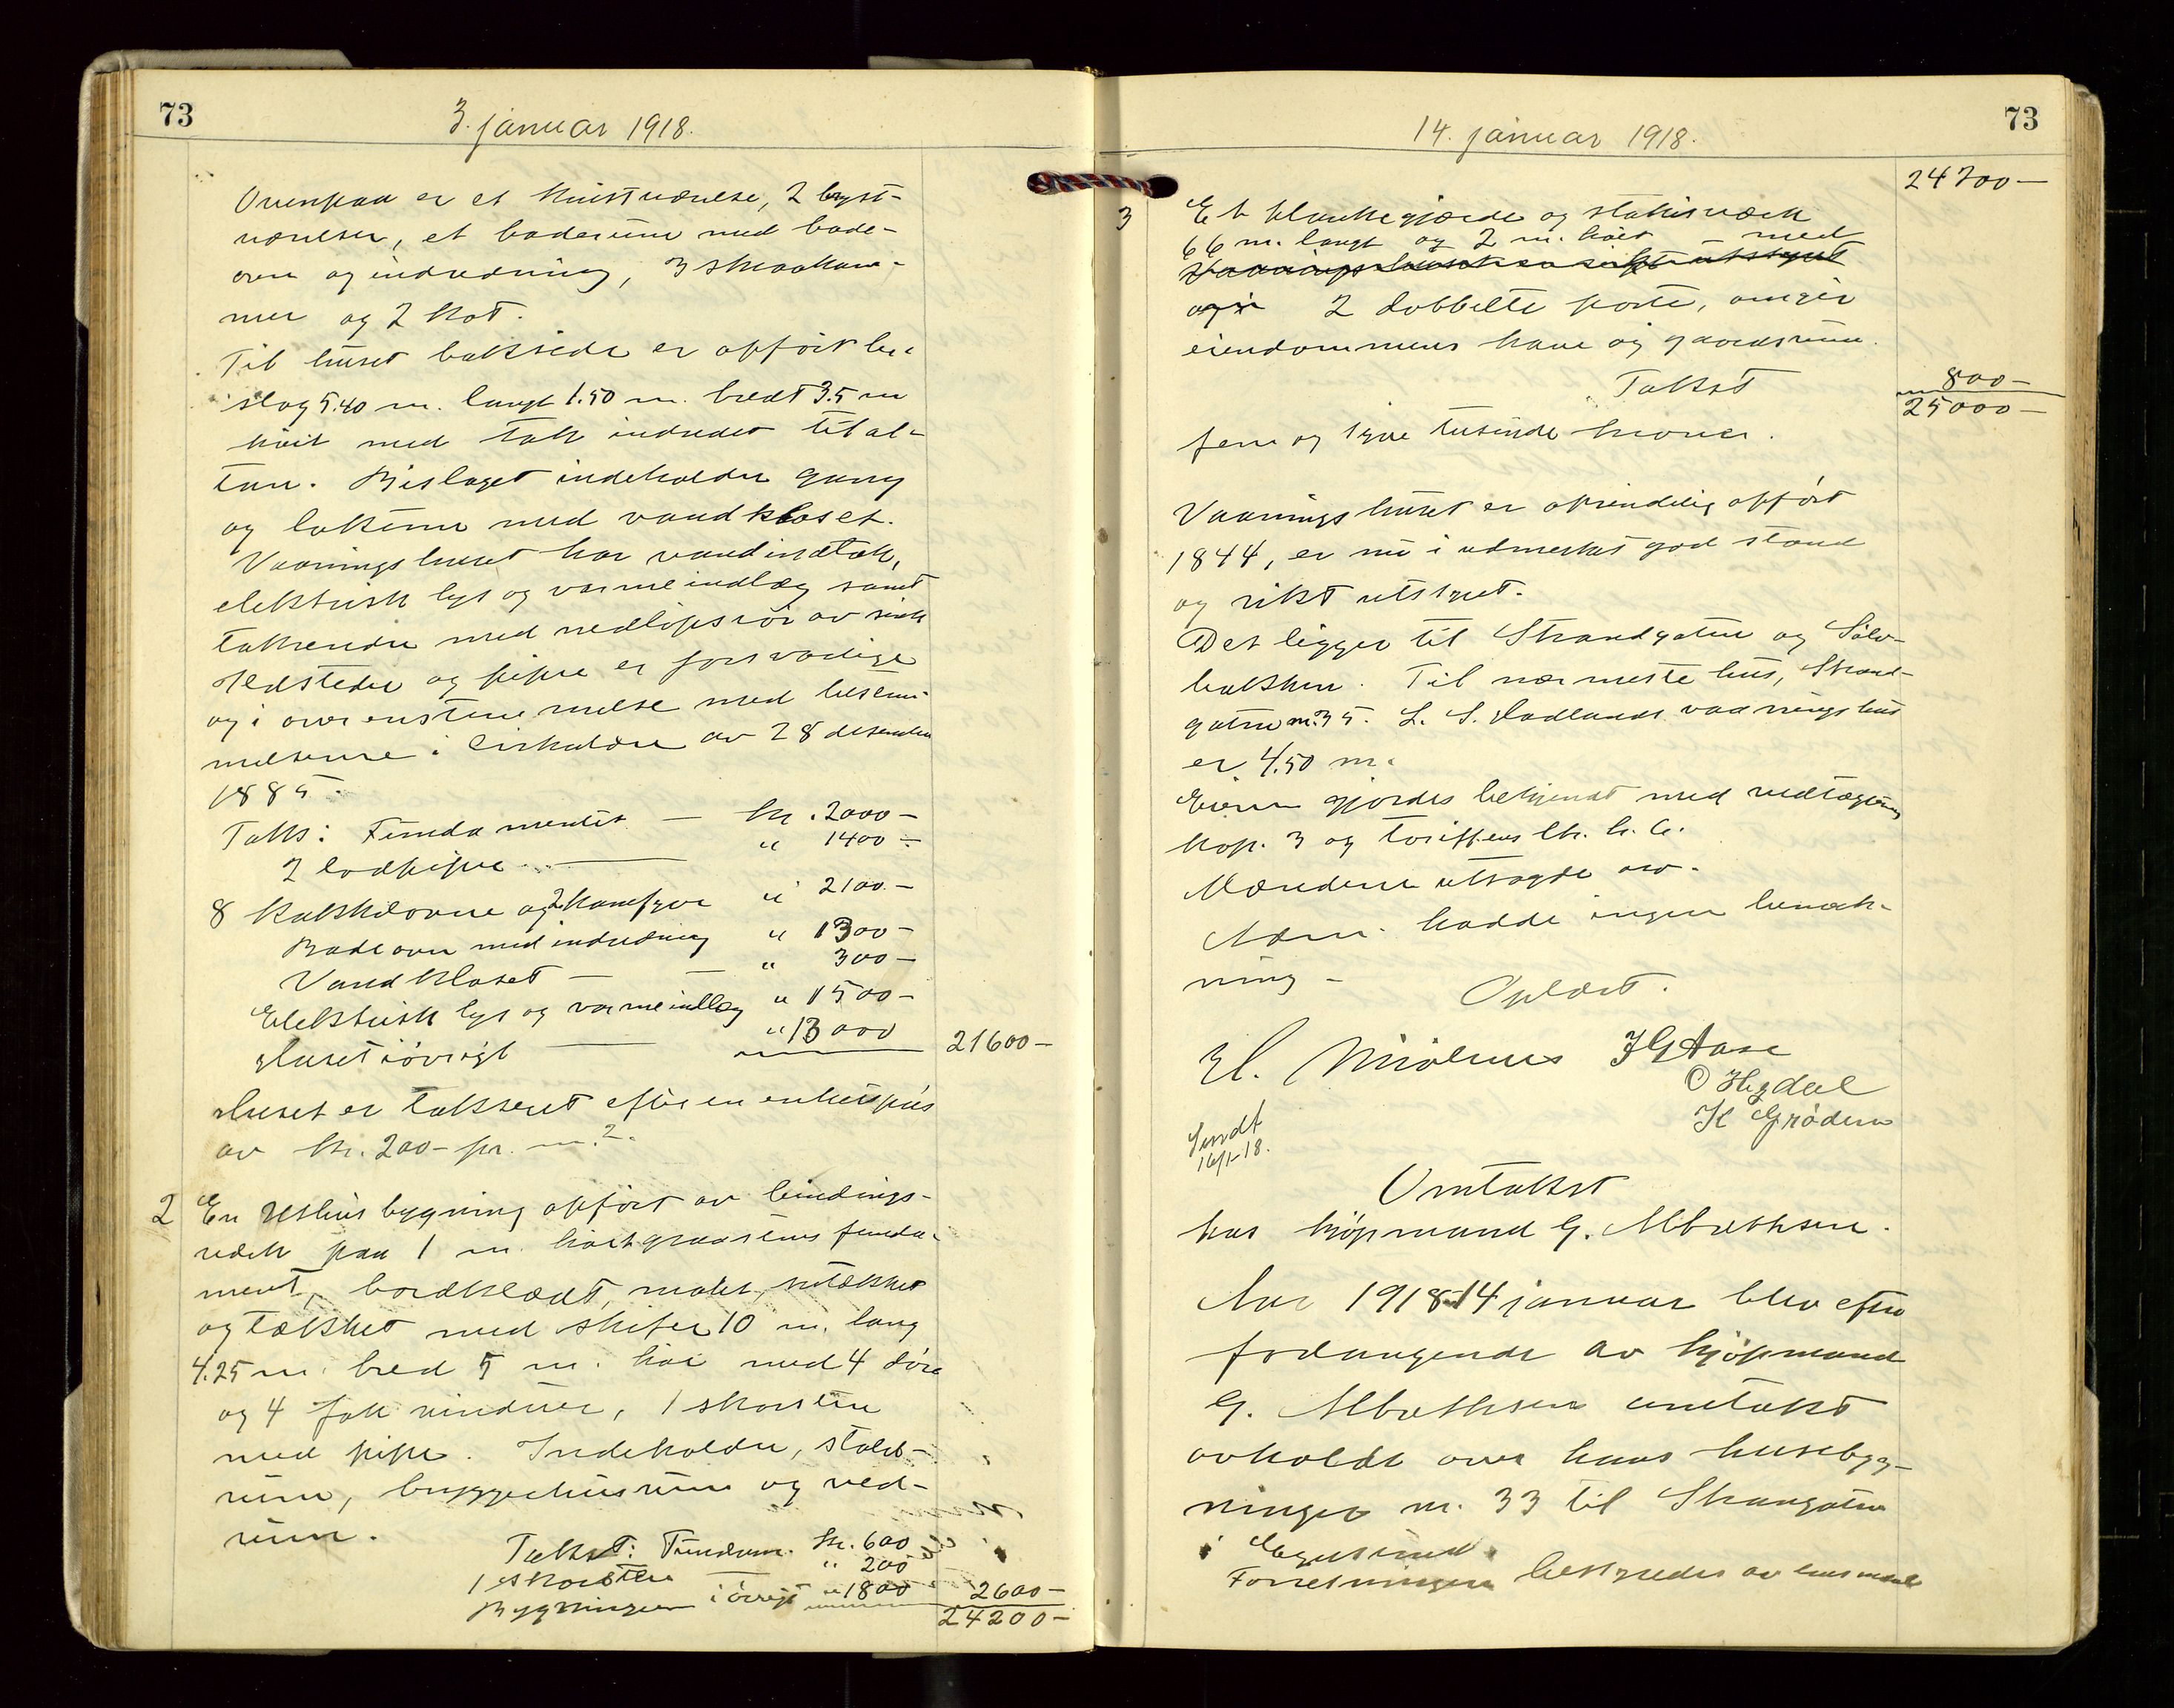 73
3. januar 1918.
Ovenpaa er et kvistværelse, 2 bryst-
værelser, et baderum med bade-
ovn og indredning, 3 skraakam-
mer og 2 kot.
Til huset bakside er opført bi-
slag 5.40 m. langt 1.50 m. bredt 3.5 m
høit med tak indredet til al-
tan. Bislaget indeholder gang
og lokum med vandkloset.
Vaaningshuset har vandindtak,
elektrisk lys og varmeindlæg samt
takrender med nedløpsrør av sink
Ildsteder og piper er forsvarlige
og i overenstemmelse med bestem-
melserne i cirkulære av 28 desember
1885.
Takst: Fundamentet — kr. 2000 —
2 lodpiper — " 1400 —
8 kakkelovne og 2 komfyrer " 2100 —
Badeovn med indredning " 1300 —
Vandkloset — " 300 —
Elektrisk lys og varmeindlæg " 1500 —
Huset iøvrigt — " 13000 21600 —
Huset er taksert efter en enhetspris
av kr. 200 – pr. m.2.
2 En Uthusbygning opført av bindings-
verk paa 1 m. høit graastens funda-
ment, bordklædt, malet,
og tækket med skifer 10 m. lang
4.25 m. bred 5 m. høi med 4 døre
og 4 fak vinduer, 1 skorsten
med pipe. Indeholder, stald-
rum, bryggerhusrum og ved-
rum.
Takst: Fundam. kr. 600
1 skorsten — " 200
Bygningen iøvrigt " 1800 2600 —
24200 —
73
14. januar 1918.
24200 —
3 Et plankegjærde og stakitværk
66 m. langt og 2 m. høit med
2 dobbelte porte, omgir
eiendommens have og gaardsrum.
Takst 800 —
25000 —
fem og tyve tusinde kroner.
Vaaningshuset er oprindelig opført
1844, er nu i utmerket god stand
og rikt utstyret.
Det ligger til Strandgaten og Sølv-
bakken. Til nærmeste hus, Strand-
gaten nr. 35. L. S. Hadlands vaaningshus
er 4.50 m.
Eieren gjordes bekjendt med vedtægternes
kap. 3 og tariffens
Mændene utsagde osv.
Mæn. hadde ingen bemærk-
ning –
Oplæst.
El. Mirolines J G Aase
O Hegdal
K Grødem
Sendt
16/1-18.
Omtakst
hos kjøpmand G. Albrethsen.
Aar 1918 14 januar blev efter
forlangende av kjøpmand
G. Albrethsen omtakst
avholdt over hans husebyg-
ninger nr. 33 til Strangaten
i Egersund.
Forretningen bestyredes av lensmand